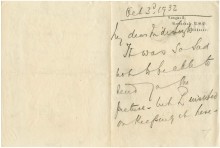 Oct 2nd 1932
My dear
It was so sad
not to be able to
send you the
picture - but he insisted
on keeping it here -